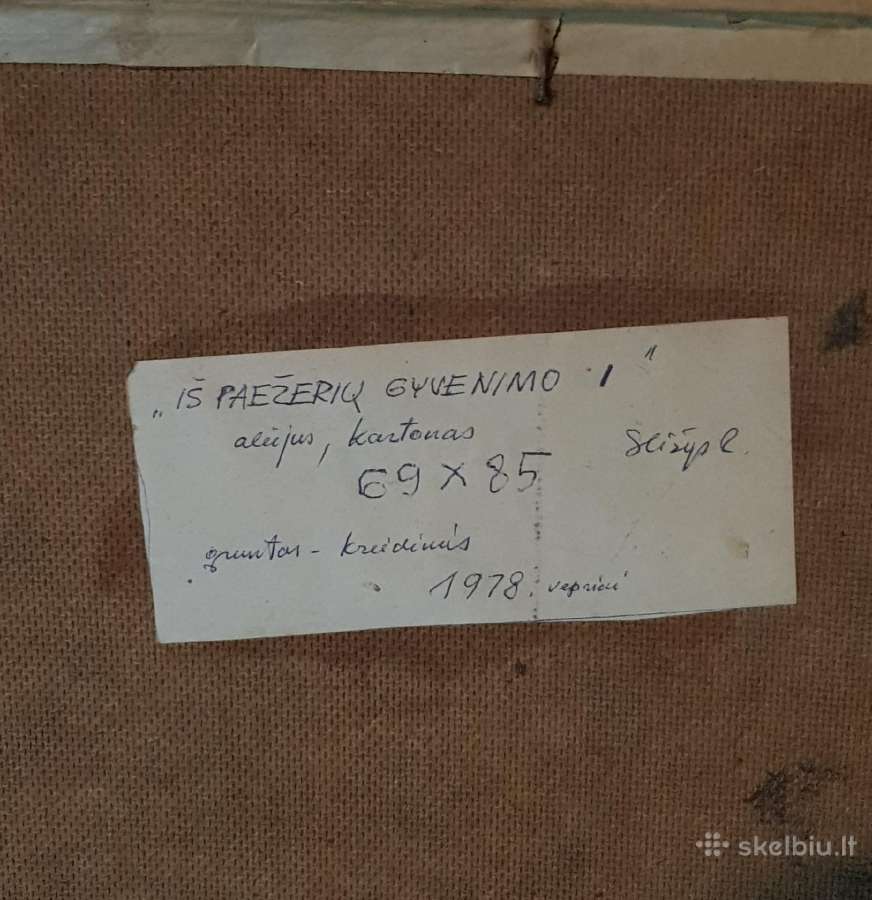 „IŠ PAEŽERIŲ GYVENIMO I"
aliejus, kartonas
Šližys R.
69 x 85
gruntas - kreidinis
1978.
skelbiu.lt